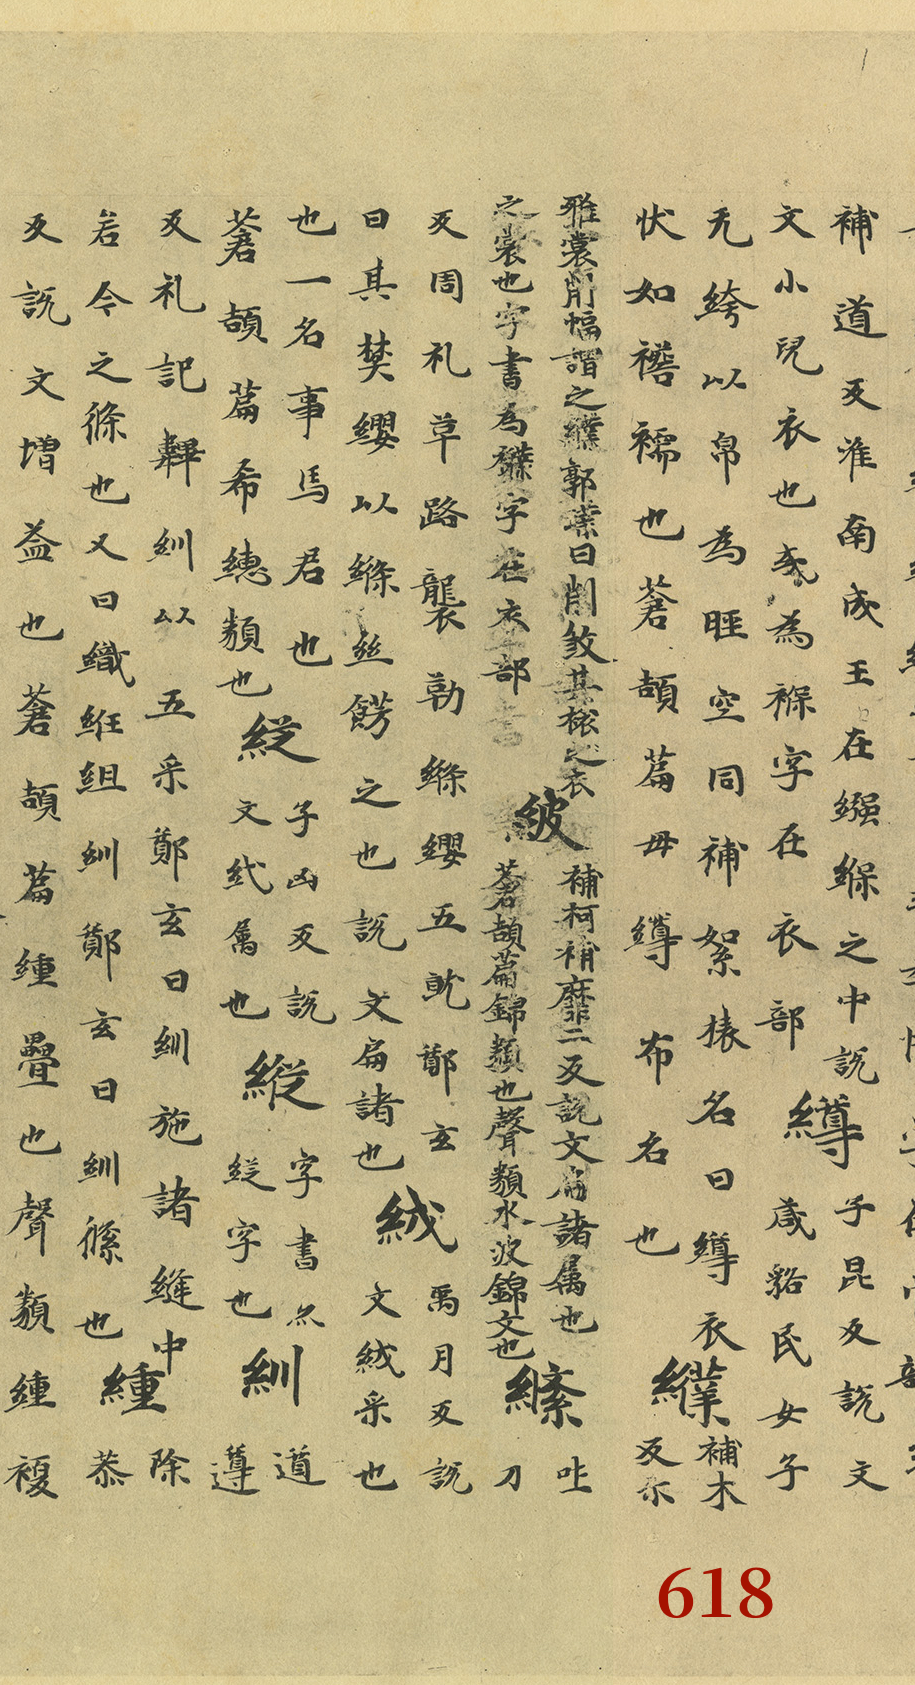 補道反淮南成王在繦緥之中説
文小兒衣也或為褓字在衣部
繜
子昆反説文
薉貉民女子
无絝以帛為脛空同補絮裱名曰繜衣
状如襜襦也蒼頡篇毋繜布名也
纀
補木
反尒
雅裳削幅謂之纀郭璞曰削敓其裱之衣
之裳也字書為襥字在衣部
紴
補柯補靡二反説文扁諸属也
蒼頡篇錦類也聲類水波錦文也
縧
吐
刀
反周礼草路龔勒縧纓五就鄭玄
曰其樊纓以縧丝餝之也説文扁諸也
絨
禹月反説
文絨采也
也一名事馬君也
蒼頡篇希繐類也
緃
子凶反説
文絨属也
縱
字書亦
緃字也
紃
道
遵
反礼記紃以五采鄭玄曰紃施諸縫中
若今之絛也又曰織絍組紃鄭玄曰紃絛也
緟
除
恭
反説文增益也蒼頡篇緟疊也聲類緟複
618